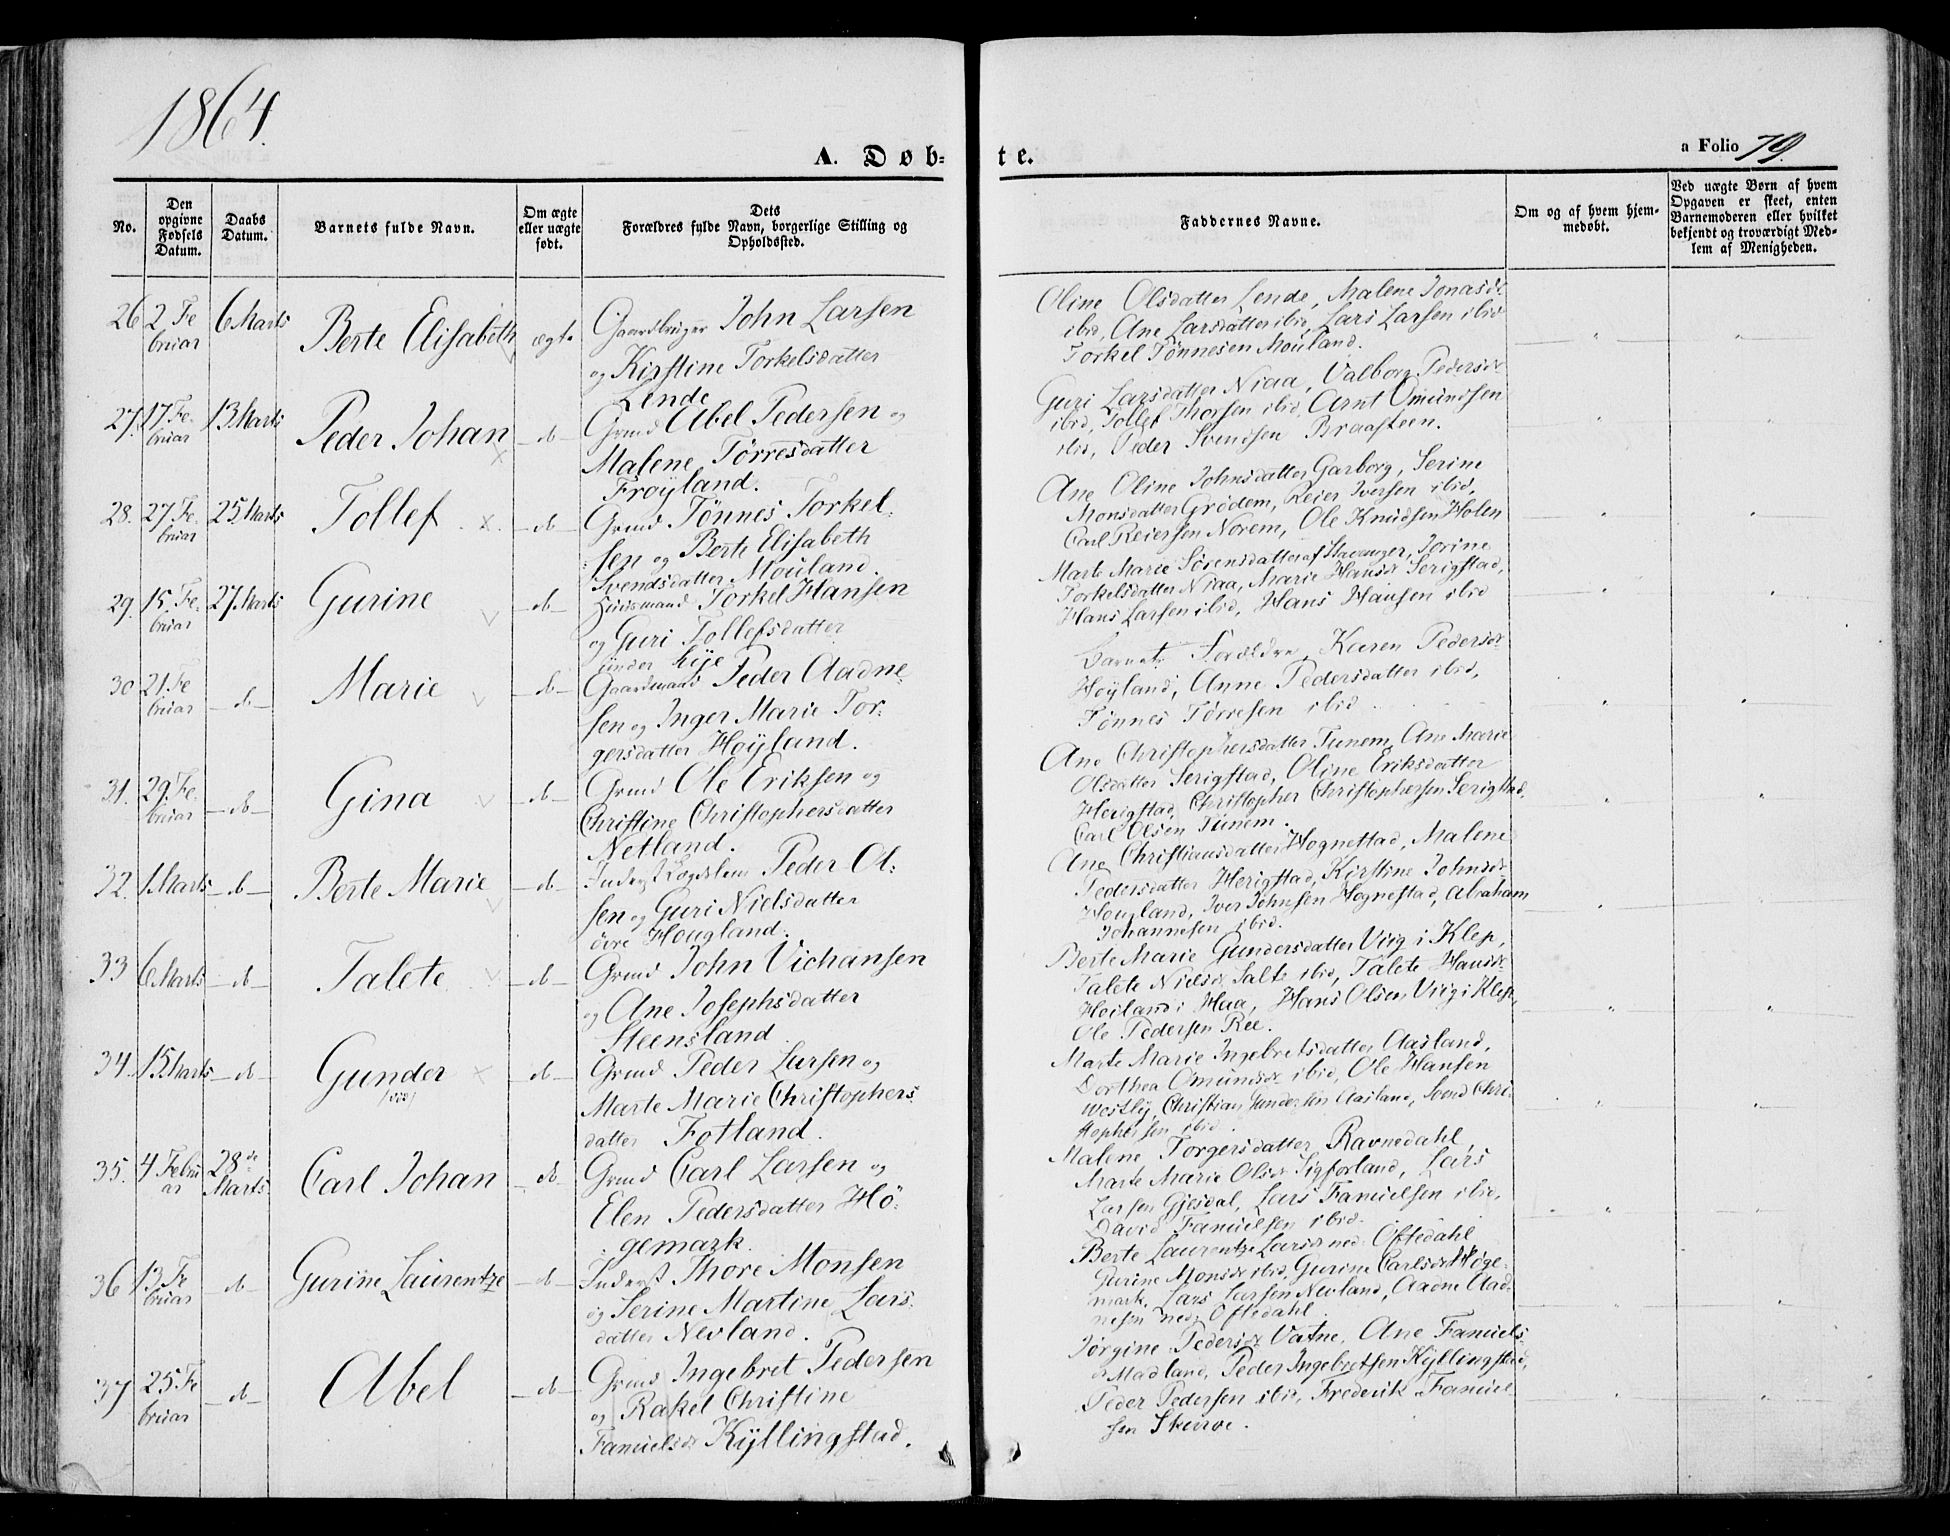 1864.
A. Døb-
te.
a Folio 79.
No.
Den opgivne Fødsels Datum.
Daabs Datum.
Barnets fulde Navn.
Om ægte eller uægte født.
Dets Forældres fulde Navn, borgerlige Stilling og Opholdssted.
Faddernes Navne.
Om og af hvem hjem-
medøbt.
Ved uægte Børn af hvem
Opgaven er skeet, enten
Barnemoderen eller hvilket
bekjendt og troværdigt Med-
lem af Menigheden.
26 2 Fe
bruar
6 Marts
Berte Elisabeth
ægte
Gaardbruger John Larsen
og Kirstine Torkelsdatter
Lende
Oline Olsdatter Lende, Malene Jonasdr
ibid, Ane Larsdatter ibid, Lars Larsen ibid
Torkel Tønnesen Mouland.
27. 17 Fe-
bruar
13 Marts
Peder Johan
do
Grmd Abel Pedersen og
Malene Tørresdatter
Frøyland.
Guri Larsdatter Niaa, Valborg Pedersdr
ibid, Tollef Thorsen ibid, Arnt Omundsen
ibid, Peder Svendsen Braasteen.
28. 27 Fe-
bruar
25 Marts
Tollef
do
Grmd Tønnes Torkel-
sen og Berte Elisabeth
Svendsdatter Mouland.
Ane Oline Johnsdatter Garborg, Serine
Monsdatter Grødem, Reier Iversen ibid,
Carl Reiersen Norem, Ole Knudsen Holen
29. 15. Fe-
bruar
27. Marts
Gurine
do
Huusmand Torkel Hansen
og Guri Tollefsdatter
under Lye
Marte Marie Sørensdatter af Stavanger, Jorine
Torkelsdatter Niaa, Marie Hansdr Serigstad,
Hans Larsen ibid, Hans Hansen ibid
30 21. Fe
bruar
do
Marie
do
Gaardmand Peder Aadne-
sen og Inger Marie Tor-
gersdatter Høyland.
Barnets Forældre, Karen Pedersdr
Høyland, Anne Pedersdatter ibid,
Tønnes Tørresen ibid.
31. 29. Fe-
bruar
do
Gina
do
Grmd Ole Eriksen og
Christine Christophersdatter
Netland.
Ane Christophersdatter Tunem, Ane Marie
Olsdatter Serigstad, Oline Eriksdatter
Herigstad, Christopher Christophersen Serigstad,
Carl Olsen Tunem.
32. 1 Marts
do
Berte Marie
do
Inderst Lægdslem Peder Ol-
sen og Guri Nielsdatter
øvre Hougland.
Ane Christiansdatter Hognestad, Malene
Pedersdatter Herigstad, Kirstine Johnsdr
Hougland, Iver Johnsen Hognestad, Abraham
Johannesen ibid.
33 6 Marts
do
Talete
do
Grmd John Vichansen
og Ane Josephsdatter
Steensland
Berte Marie Gundersdatter Virig i Klep,
Talete Nielsdr Salte ibid, Talete Hansdr
Høiland i Haa, Hans Olsen Virig i Klep,
Ole Pedersen Ree.
34. 15 Marts
do
Gunder
do
Grmd Peder Larsen og
Marte Marie Christophers-
datter Fotland.
Marte Marie Ingebretsdatter Aasland,
Dorthea Omundsdr ibid, Ole Hansen
Westly, Christian Gundersen Aasland, Svend Chri-
stophersen ibid.
35. 4 Febru
ar
28de
Marts
Carl Johan
do
Grmd Carl Larsen og
Elen Pedersdatter Hö-
gemark.
Malene Torgersdatter Ravnedahl,
Marte Marie Olsdr Sigforland, Lars
Larsen Gjesdal, Lars Samuelsen ibid,
David Samuelsen ibid.
36 13 Fe
bruar
do
Gurine Laurentze
do
Inderst Thore Monsen
og Serine Martine Lars-
datter Nevland.
Berte Laurentze Larsdr ned. Oftedahl
Gurine Monsdr ibid, Gurine Carlsdr Høge-
mark, Lars Larsen Nevland, Aadne Aad-
nesen ned. Oftedahl
37 25 Fe
bruar
do
Abel
do
Grmd Ingebret Pedersen
og Rakel Christine
Samuelsdr Kyllingstad.
Jørgine Pedersdr Vatne, Ane Samuels-
dr Madland, Peder Ingebretsen Kyllingstad,
Peder Pedersen ibid, Frederik Samuel-
sen Skurve.